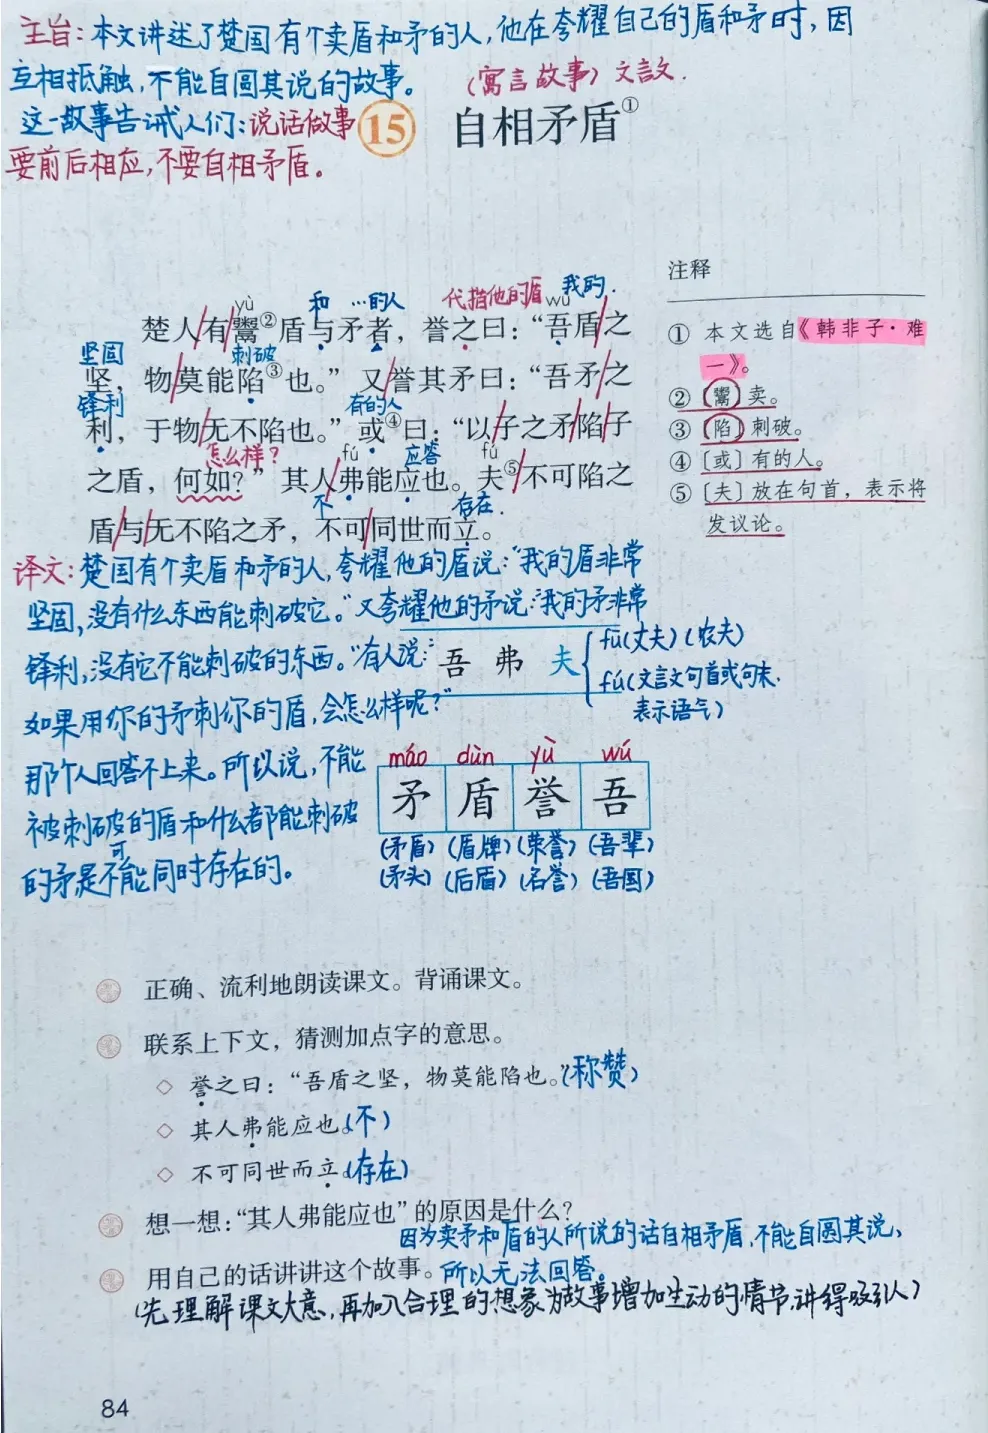 主旨：本文讲述了楚国有个卖盾和矛的人，他在夸耀自己的盾和矛时，因
互相抵触，不能自圆其说的故事。
（寓言故事）文言文.
这一故事告诫人们：说话做事
要前后相应，不要自相矛盾。
15 自相矛盾①
注释
① 本文选自《韩非子·难
一》。
② 〔鬻〕卖。
③ 〔陷〕刺破。
④ 〔或〕有的人。
⑤ 〔夫〕放在句首，表示将
发议论。
和 …的人 代指他的盾 我的.
yù wú
楚人/有/鬻②盾与矛者，誉之曰：“吾盾/之
坚固 刺破
坚，物/莫能陷③也。” 又/誉其矛曰：“吾矛/之
锋利 有的人
利，于物/无不陷也。”或④曰：“以/子之矛/陷/子
怎么样？ fú 应答 fú
之盾，何如？” 其人/弗能应也。夫⑤/不可陷之
不 存在.
盾/与/无不陷之矛，不可/同世而立。
译文：楚国有个卖盾和矛的人，夸耀他的盾说：“我的盾非常
坚固，没有什么东西能刺破它。”又夸耀他的矛说：“我的矛非常
锋利，没有它不能刺破的东西。”有人说：“
如果用你的矛刺你的盾，会怎么样呢？”
那个人回答不上来。所以说，不能
被刺破的盾和什么都能刺破
的矛是不可能同时存在的。
吾 弗 夫
fū（丈夫）（农夫）
fú（文言文句首或句末.
表示语气）
máo dùn yù wú
矛 盾 誉 吾
（矛盾）（盾牌）（荣誉）（吾辈）
（矛头）（后盾）（名誉）（吾国）
正确、流利地朗读课文。背诵课文。
联系上下文，猜测加点字的意思。
◇ 誉之曰：“吾盾之坚，物莫能陷也。”（称赞）
◇ 其人弗能应也。（不）
◇ 不可同世而立。（存在）
想一想：“其人弗能应也”的原因是什么？
因为卖矛和盾的人所说的话自相矛盾，不能自圆其说，
所以无法回答。
用自己的话讲讲这个故事。
（先理解课文大意，再加入合理的想象为故事增加生动的情节，讲得吸引人）
84